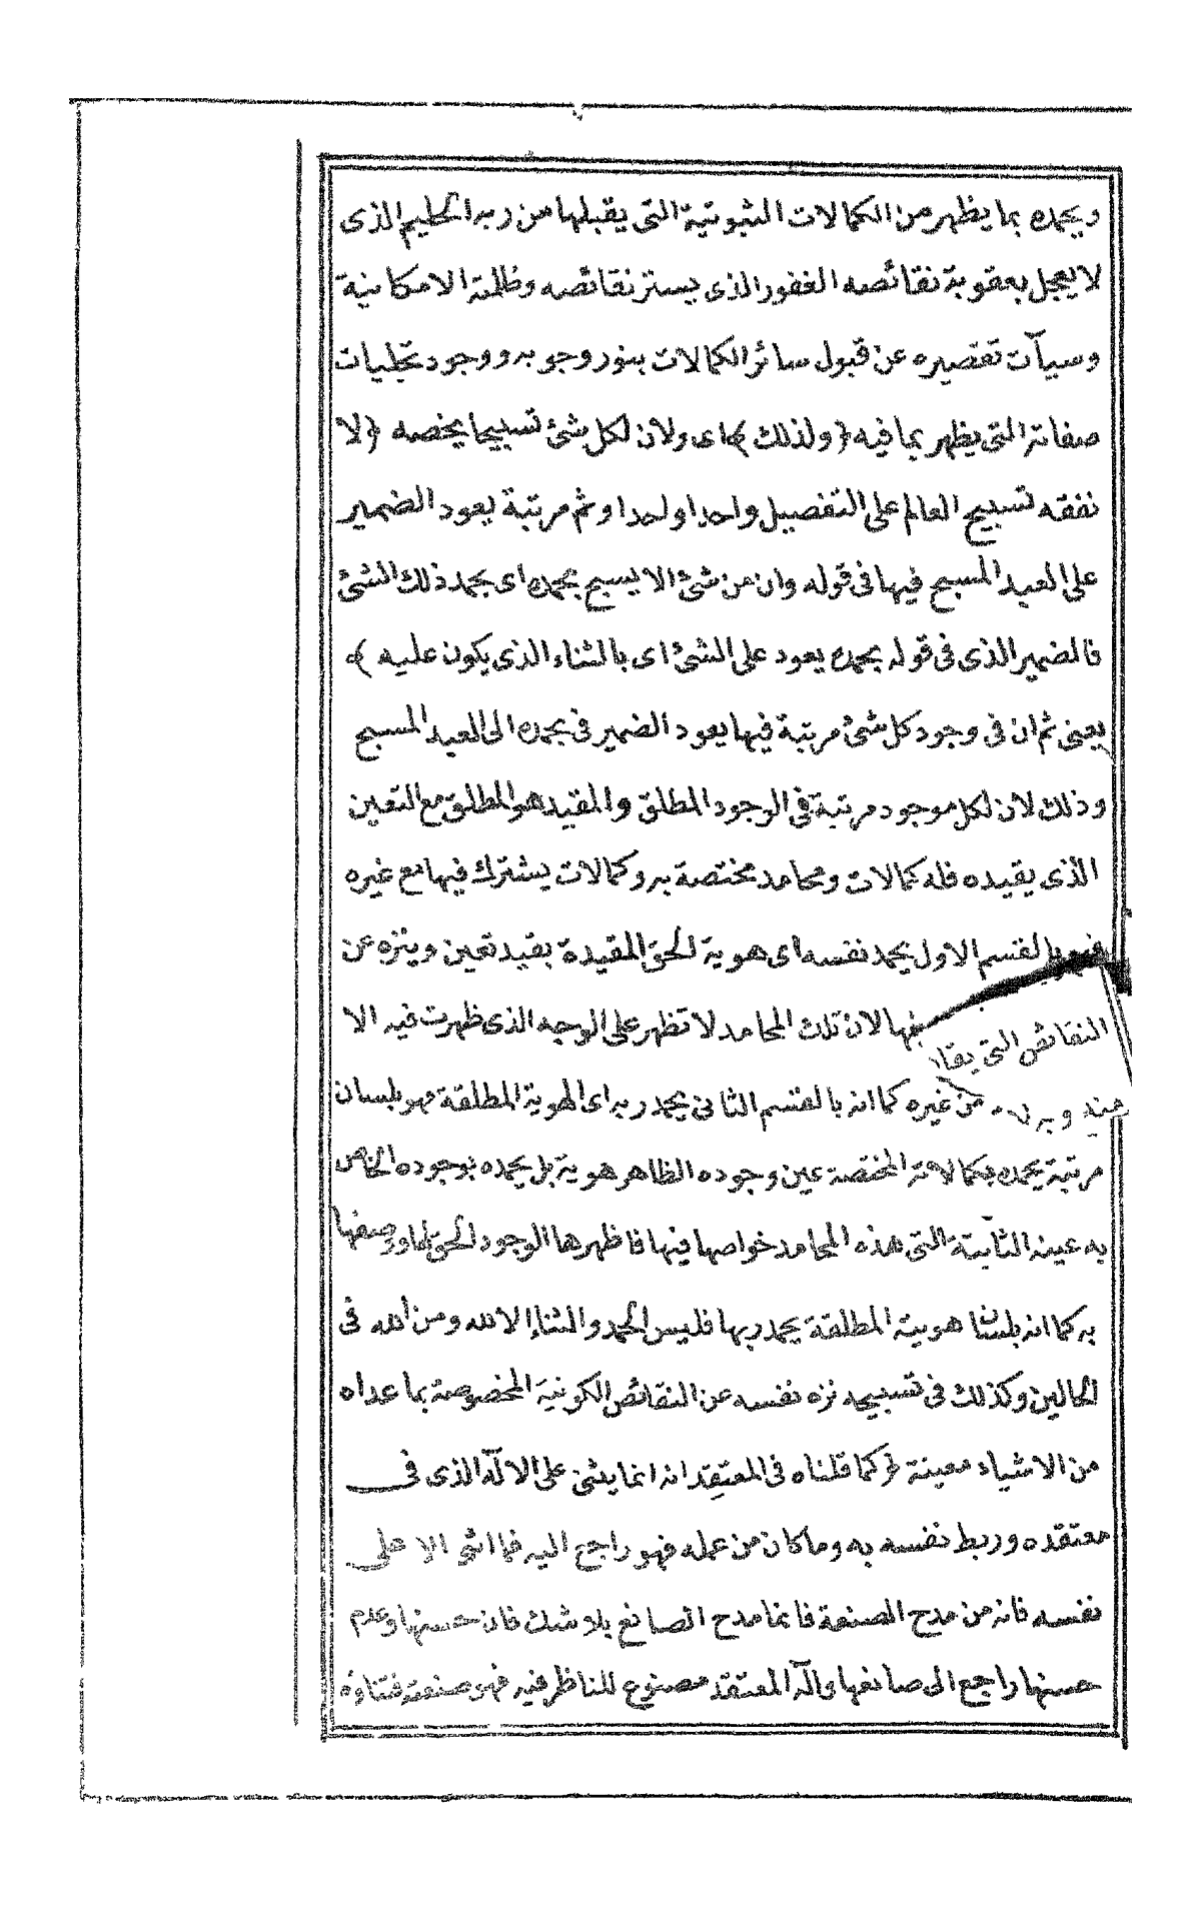 ويحمده بما يظهر من الكمالات الثبوتية التى يقبلها من ربه الحليم الذى
لا يعجل بعقوبة نقائصه الغفور الذى يستر نقائصه وظلمة الامكانية
وسيآت تقصيره عن قبول سائر الكمالات بنور وجوبه ووجود تجليات
صفاته التى يظهر بما فيه ﴿ ولذلك ﴾ اى ولان لكل شئ تسبيحا يخصه ﴿ لا
نفقه تسبيح العالم على التفصيل واحدا واحدا وثم مرتبة يعود الضمير
على العبد المسبح فيها فى قوله وان من شئ الا يسبح بحمده اى بحمد ذلك الشئ
فالضمير الذى فى قوله بحمده يعود على الشئ اى بالثناء الذى يكون عليه ﴾
يعنى ثم ان فى وجود كل شئ مرتبة فيها يعود الضمير فى بحمده الى العبد المسبح
وذلك لان لكل موجود مرتبة فى الوجود المطلق والمقيد هو المطلق مع التعين
الذى يقيده فله كمالات ومحامد مختصة به وكمالات يشترك فيها مع غيره
فهو بالقسم الاول يحمد نفسه اى هوية الحق المقيدة بقيد تعين وينزه عن
النقائص التى يقا نها لان تلك المحامد لا تظهر على الوجه الذى ظهرت فيه الا
وبه من غيره كما انه بالقسم الثانى يحمد ربه اى الهوية المطلقة فهو بلسان
مرتبة يحمده بكمالاته المختصة عين وجوده الظاهر هوية بل يحمده بوجوده الخاص
به عينه الثابتة التى هذه المحامد خواصها فيها فاظهرها الوجود الحق لها ووصفها
به كما انه بلسان هوية المطلقة يحمد ربها فليس الحمد والثناء الا لله ومن الله فى
الحالين وكذلك فى تسبيحه نزه نفسه عن النقائص الكونية المخصوصة بما عداه
من الاشياء معينة ﴿ كما قلناه فى المعتقد انه انما يثنى على الاله الذى فى
معتقده وربط نفسه به وما كان من عمله فهو راجع اليه فما اثنى الا على
نفسه فانه من مدح الصنعة فانما مدح الصانع بلا شك فان حسنها وعدم
حسنها راجع الى صانعها واله المعتقد مصنوع للناظر فيه فهو صنعته فثناؤه